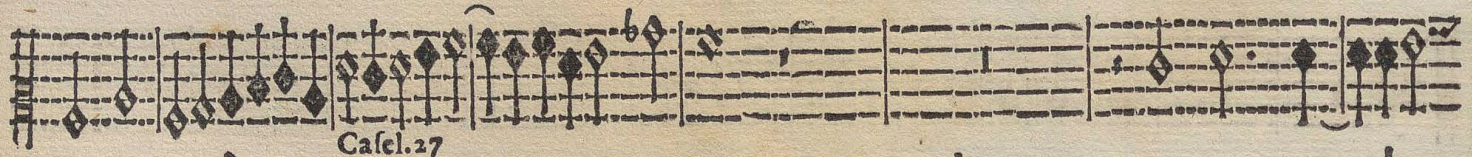 Caſel.27